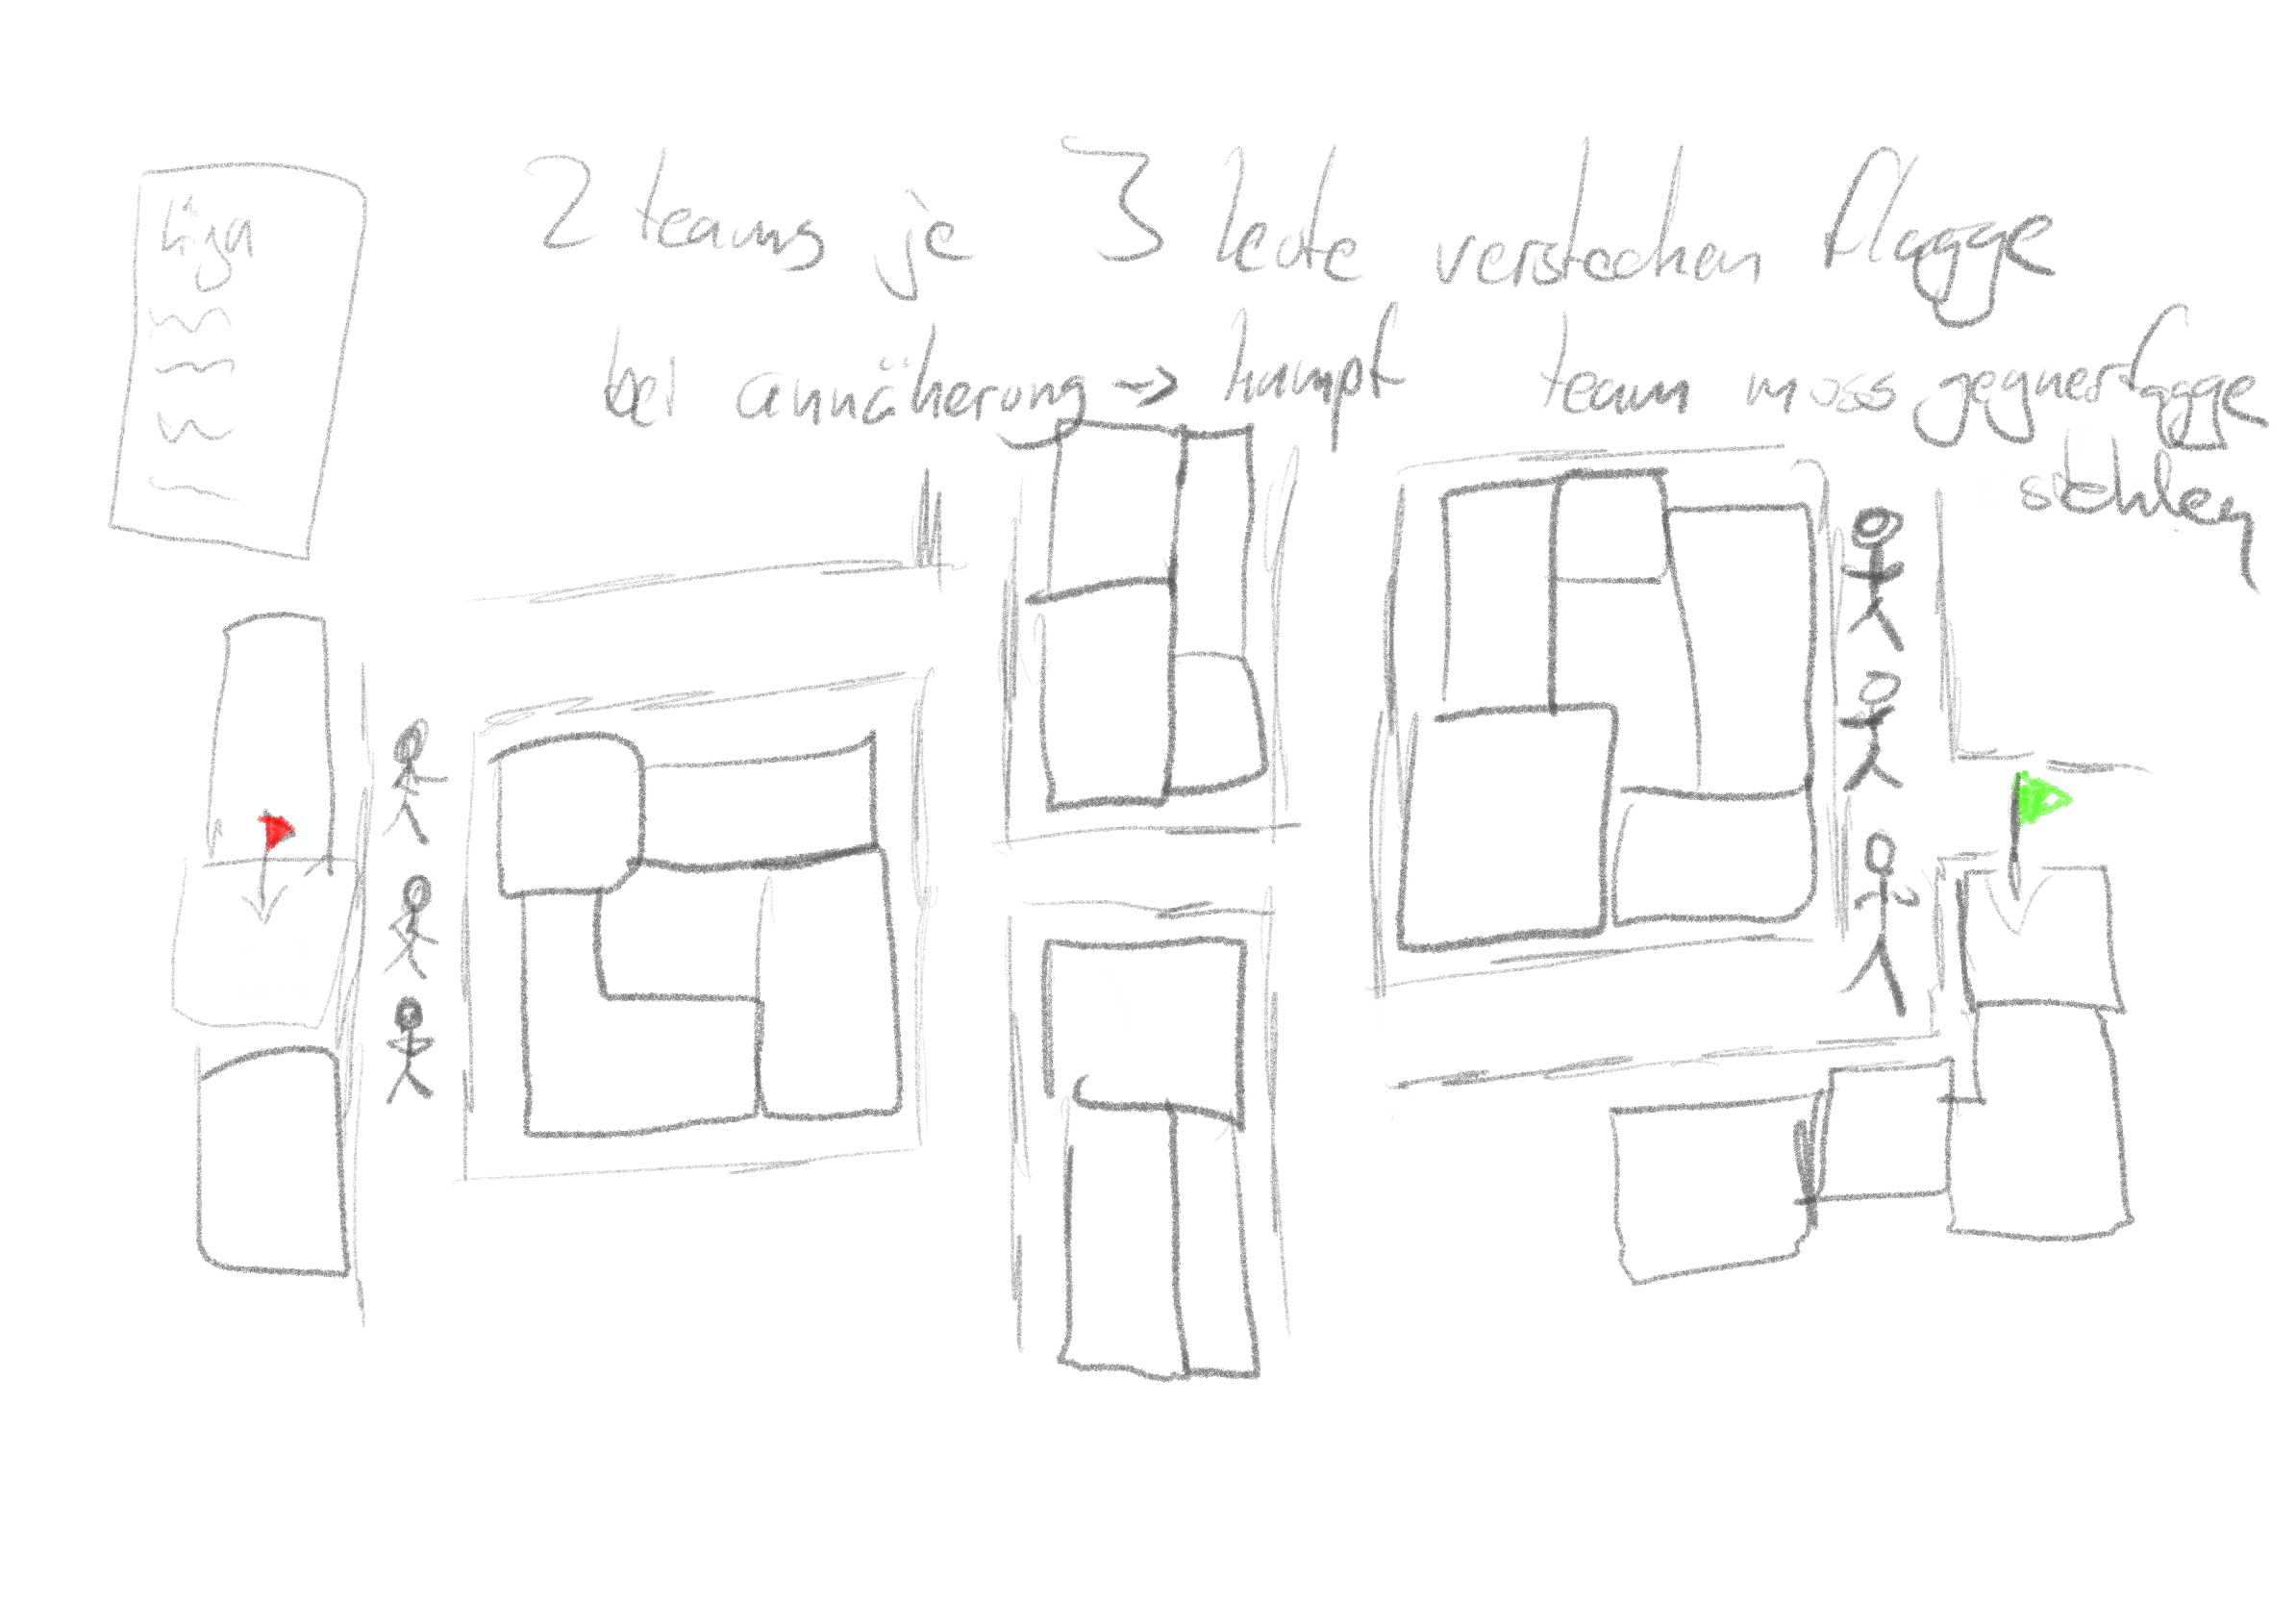 liga
2 teams je 3 leute verstecken flagge
bei annäherung -> kampf team muss gegnerflagge
stehlen